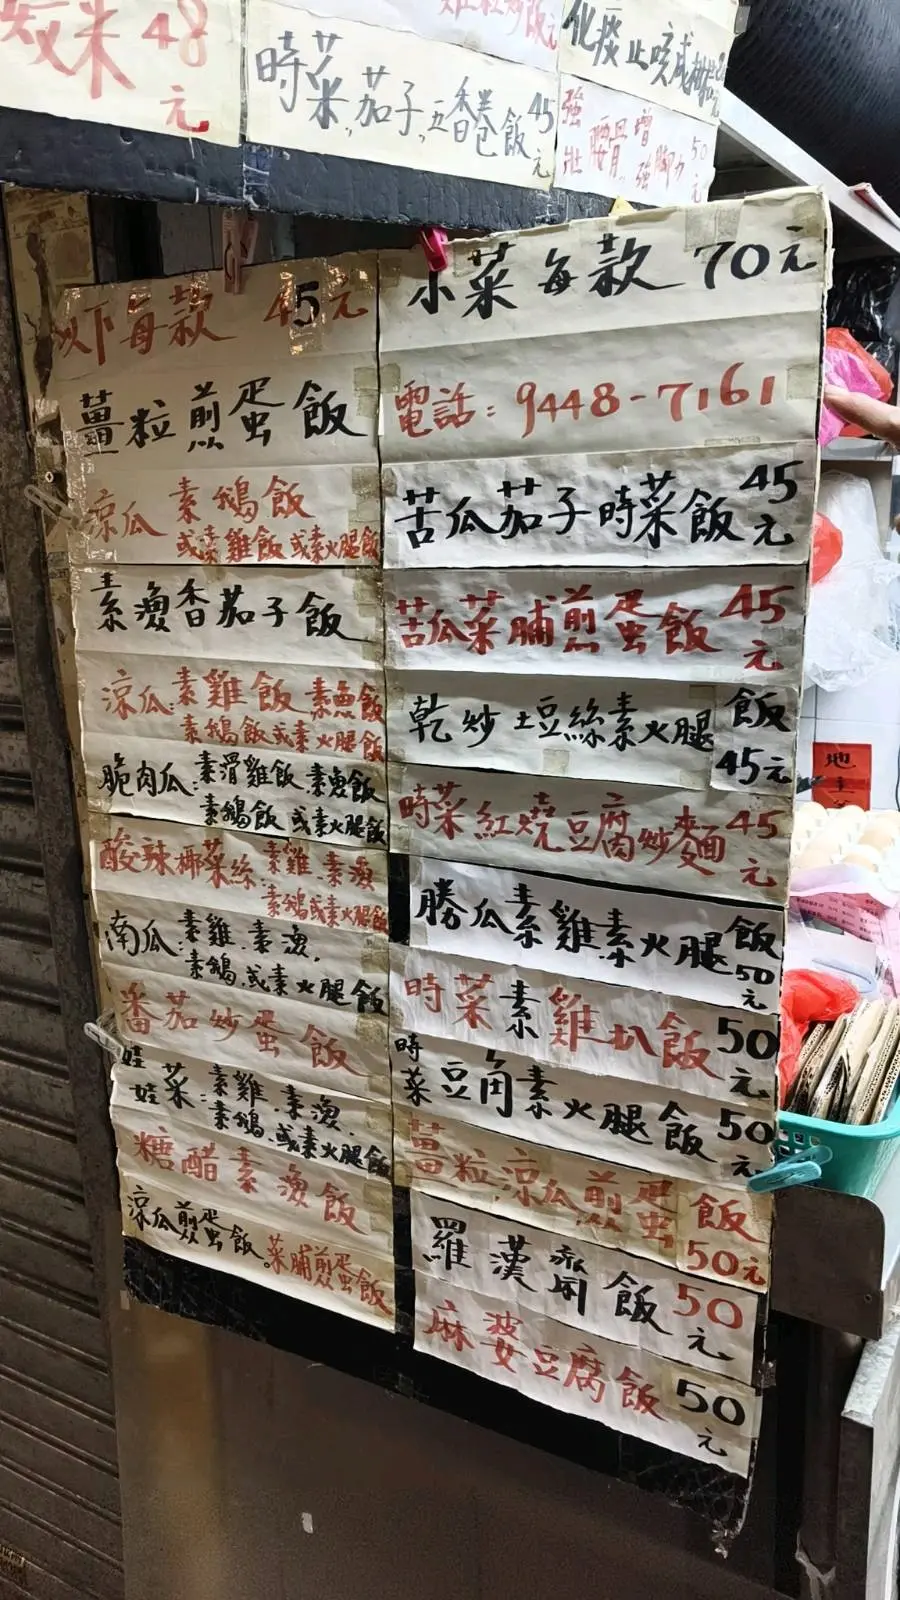 米 48元
時菜"茄子"五香卷飯 45元
化痰止咳
強壯腰骨增強脚力 50元
以下每款 45元
薑粒煎蛋飯
涼瓜 素鵝飯
或素雞飯 或素火腿飯
素魚香茄子飯
涼瓜:素雞飯 素魚飯
素鵝飯或素火腿飯
脆肉瓜:素滑雞飯.素魚飯
素鵝飯 或素火腿飯
酸辣椰菜絲:素雞.素漁
素鵝或素火腿飯
南瓜:素雞.素漁.
素鵝.或素火腿飯
番茄炒蛋飯
娃娃菜:素雞.素漁.
素鵝.或素火腿飯
糖醋素漁飯
涼瓜煎蛋飯。菜脯煎蛋飯
小菜每款 70元
電話:9448-7161
苦瓜茄子時菜飯 45元
苦瓜菜脯煎蛋飯 45元
乾炒土豆絲素火腿飯 45元
時菜紅燒豆腐炒麵 45元
勝瓜素雞素火腿飯 50元
時菜素雞扒飯 50元
時菜豆角素火腿飯 50元
薑粒涼瓜煎蛋飯 50元
羅漢齋飯 50元
麻婆豆腐飯 50元
地主